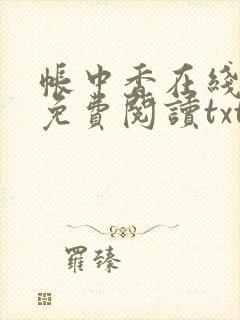 帳中香在綫
免費閱讀txt
羅臻